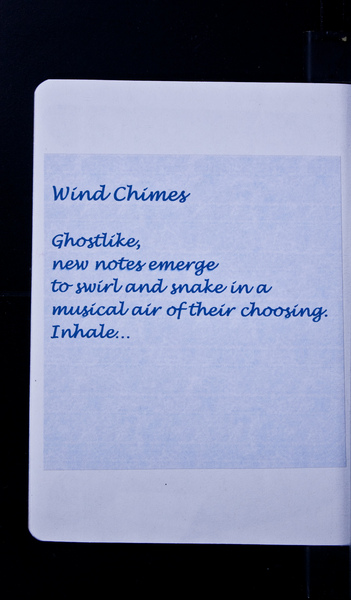 Wind Chimes
Ghostlike,
new notes emerge
to swirl and snake in a
musical air of their choosing.
Inhale...